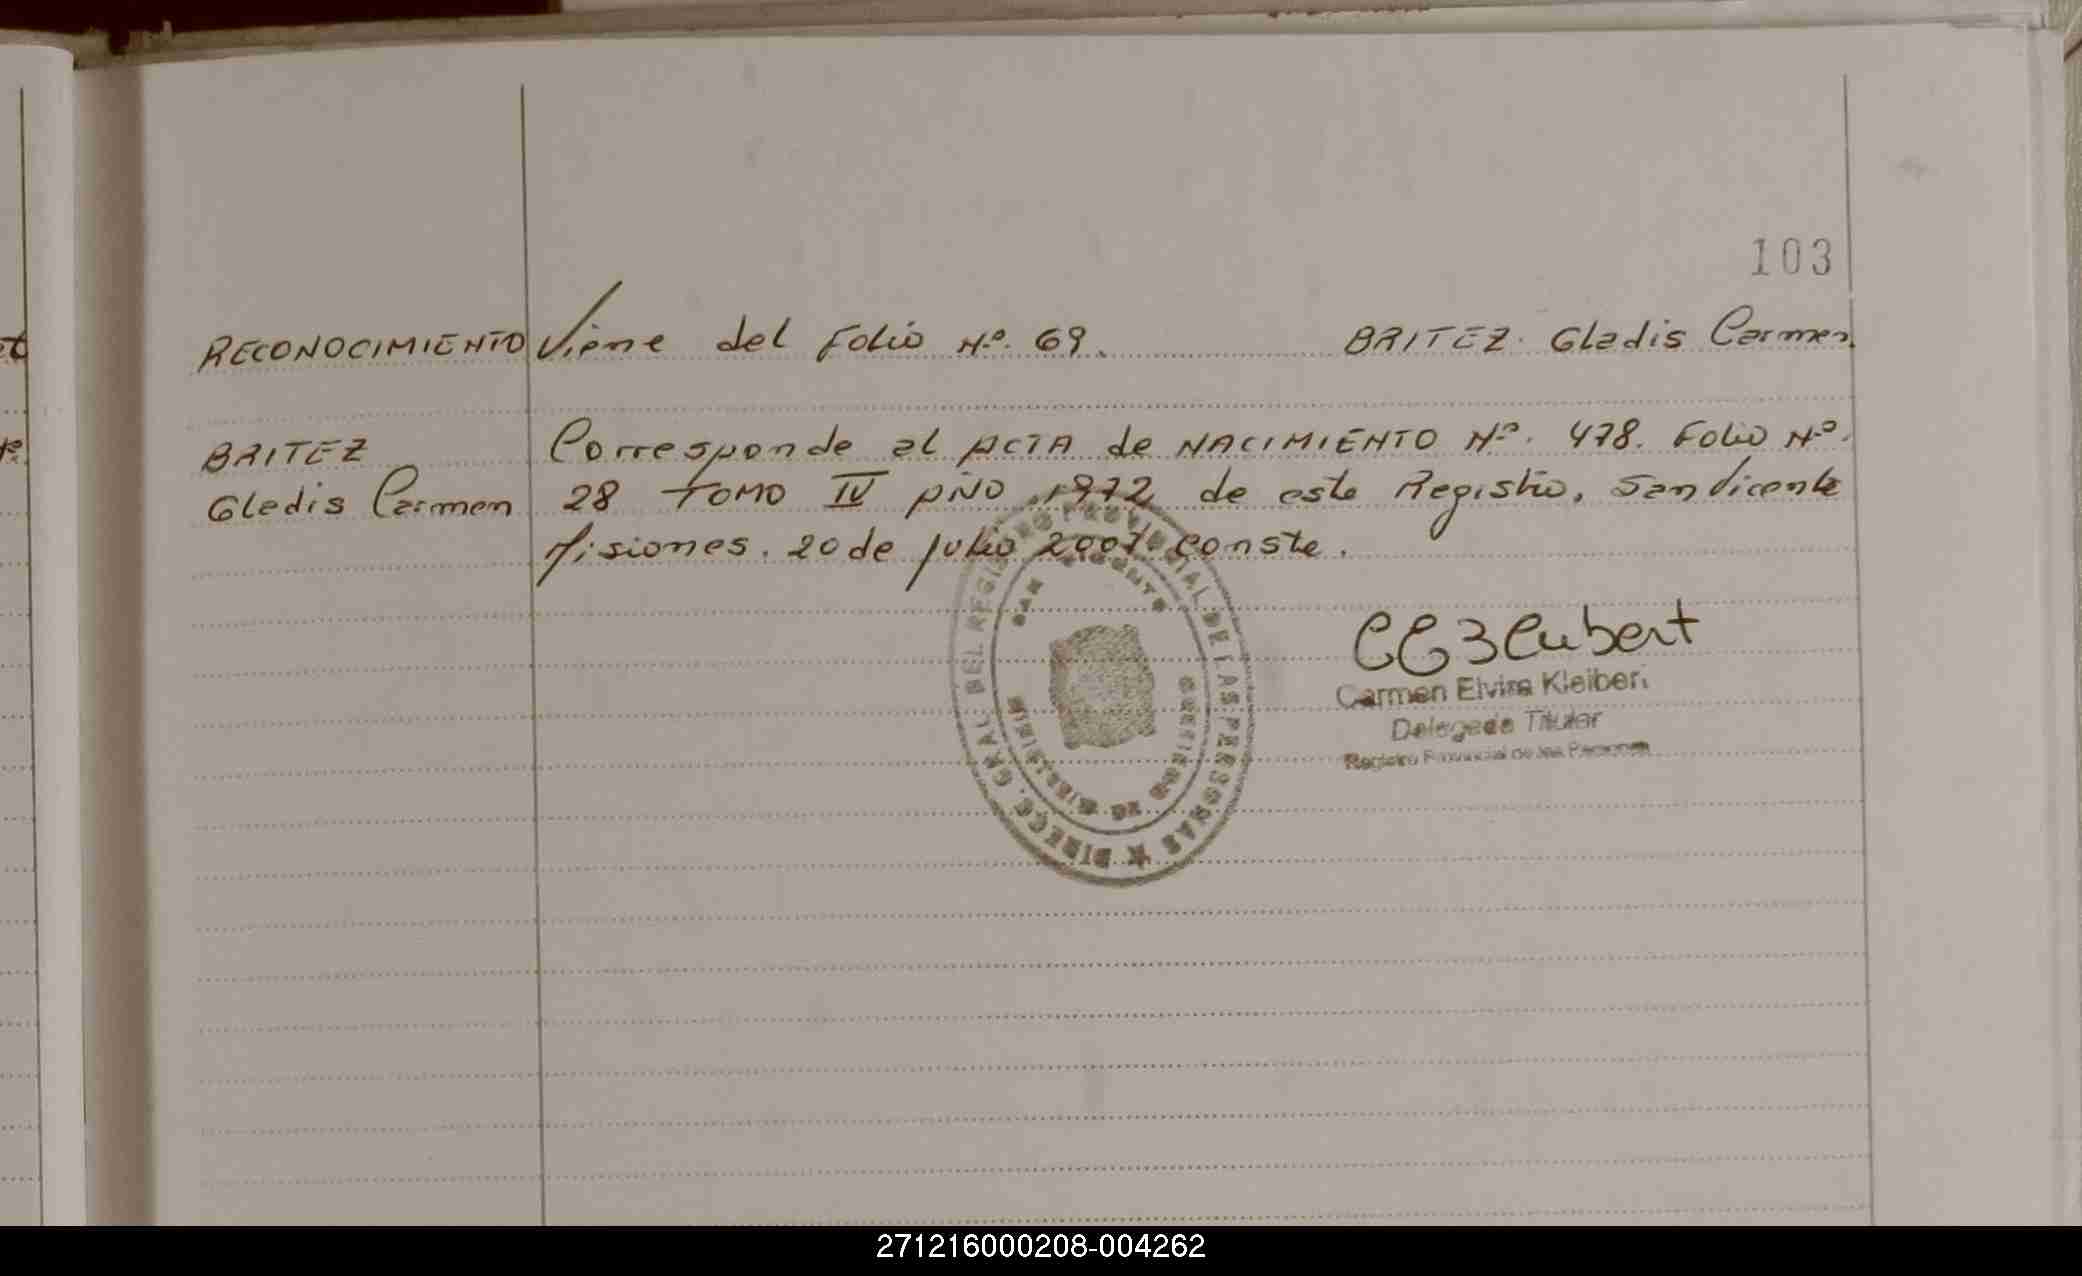 103
RECONOCIMIENTO Viene del Folio Nº. 69. BRITEZ. Gladis Carmen.
BRITEZ Corresponde al ACTA de NACIMIENTO Nº. 478. Folio Nº.
Gladis Carmen 28 TOMO IV AÑO 1972 de este Registro, San Vicente
Misiones. 20 de Julio 2007. conste.
DIRECC. GRAL DEL REGISTRO PROVINCIAL DE LAS PERSONAS ★
SAN VICENTE
Carmen Elvira Kleibert
Delegada Titular
Registro Provincial de las Personas
271216000208-004262